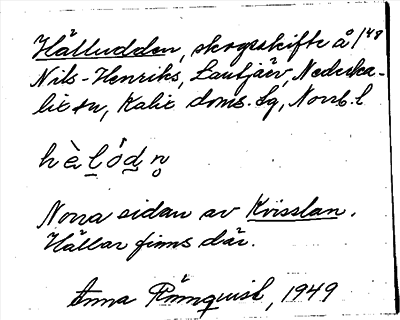 Hälludden, skogsskifte å 1/48
Nils-Henriks, Lantjärv, Nederka-
lix sn, Kalix doms.lg, Norrb. l
hὲlǒdn̥
Norra sidan av Kvisslan.
Hällar finns där.
Anna Rönnquist, 1949